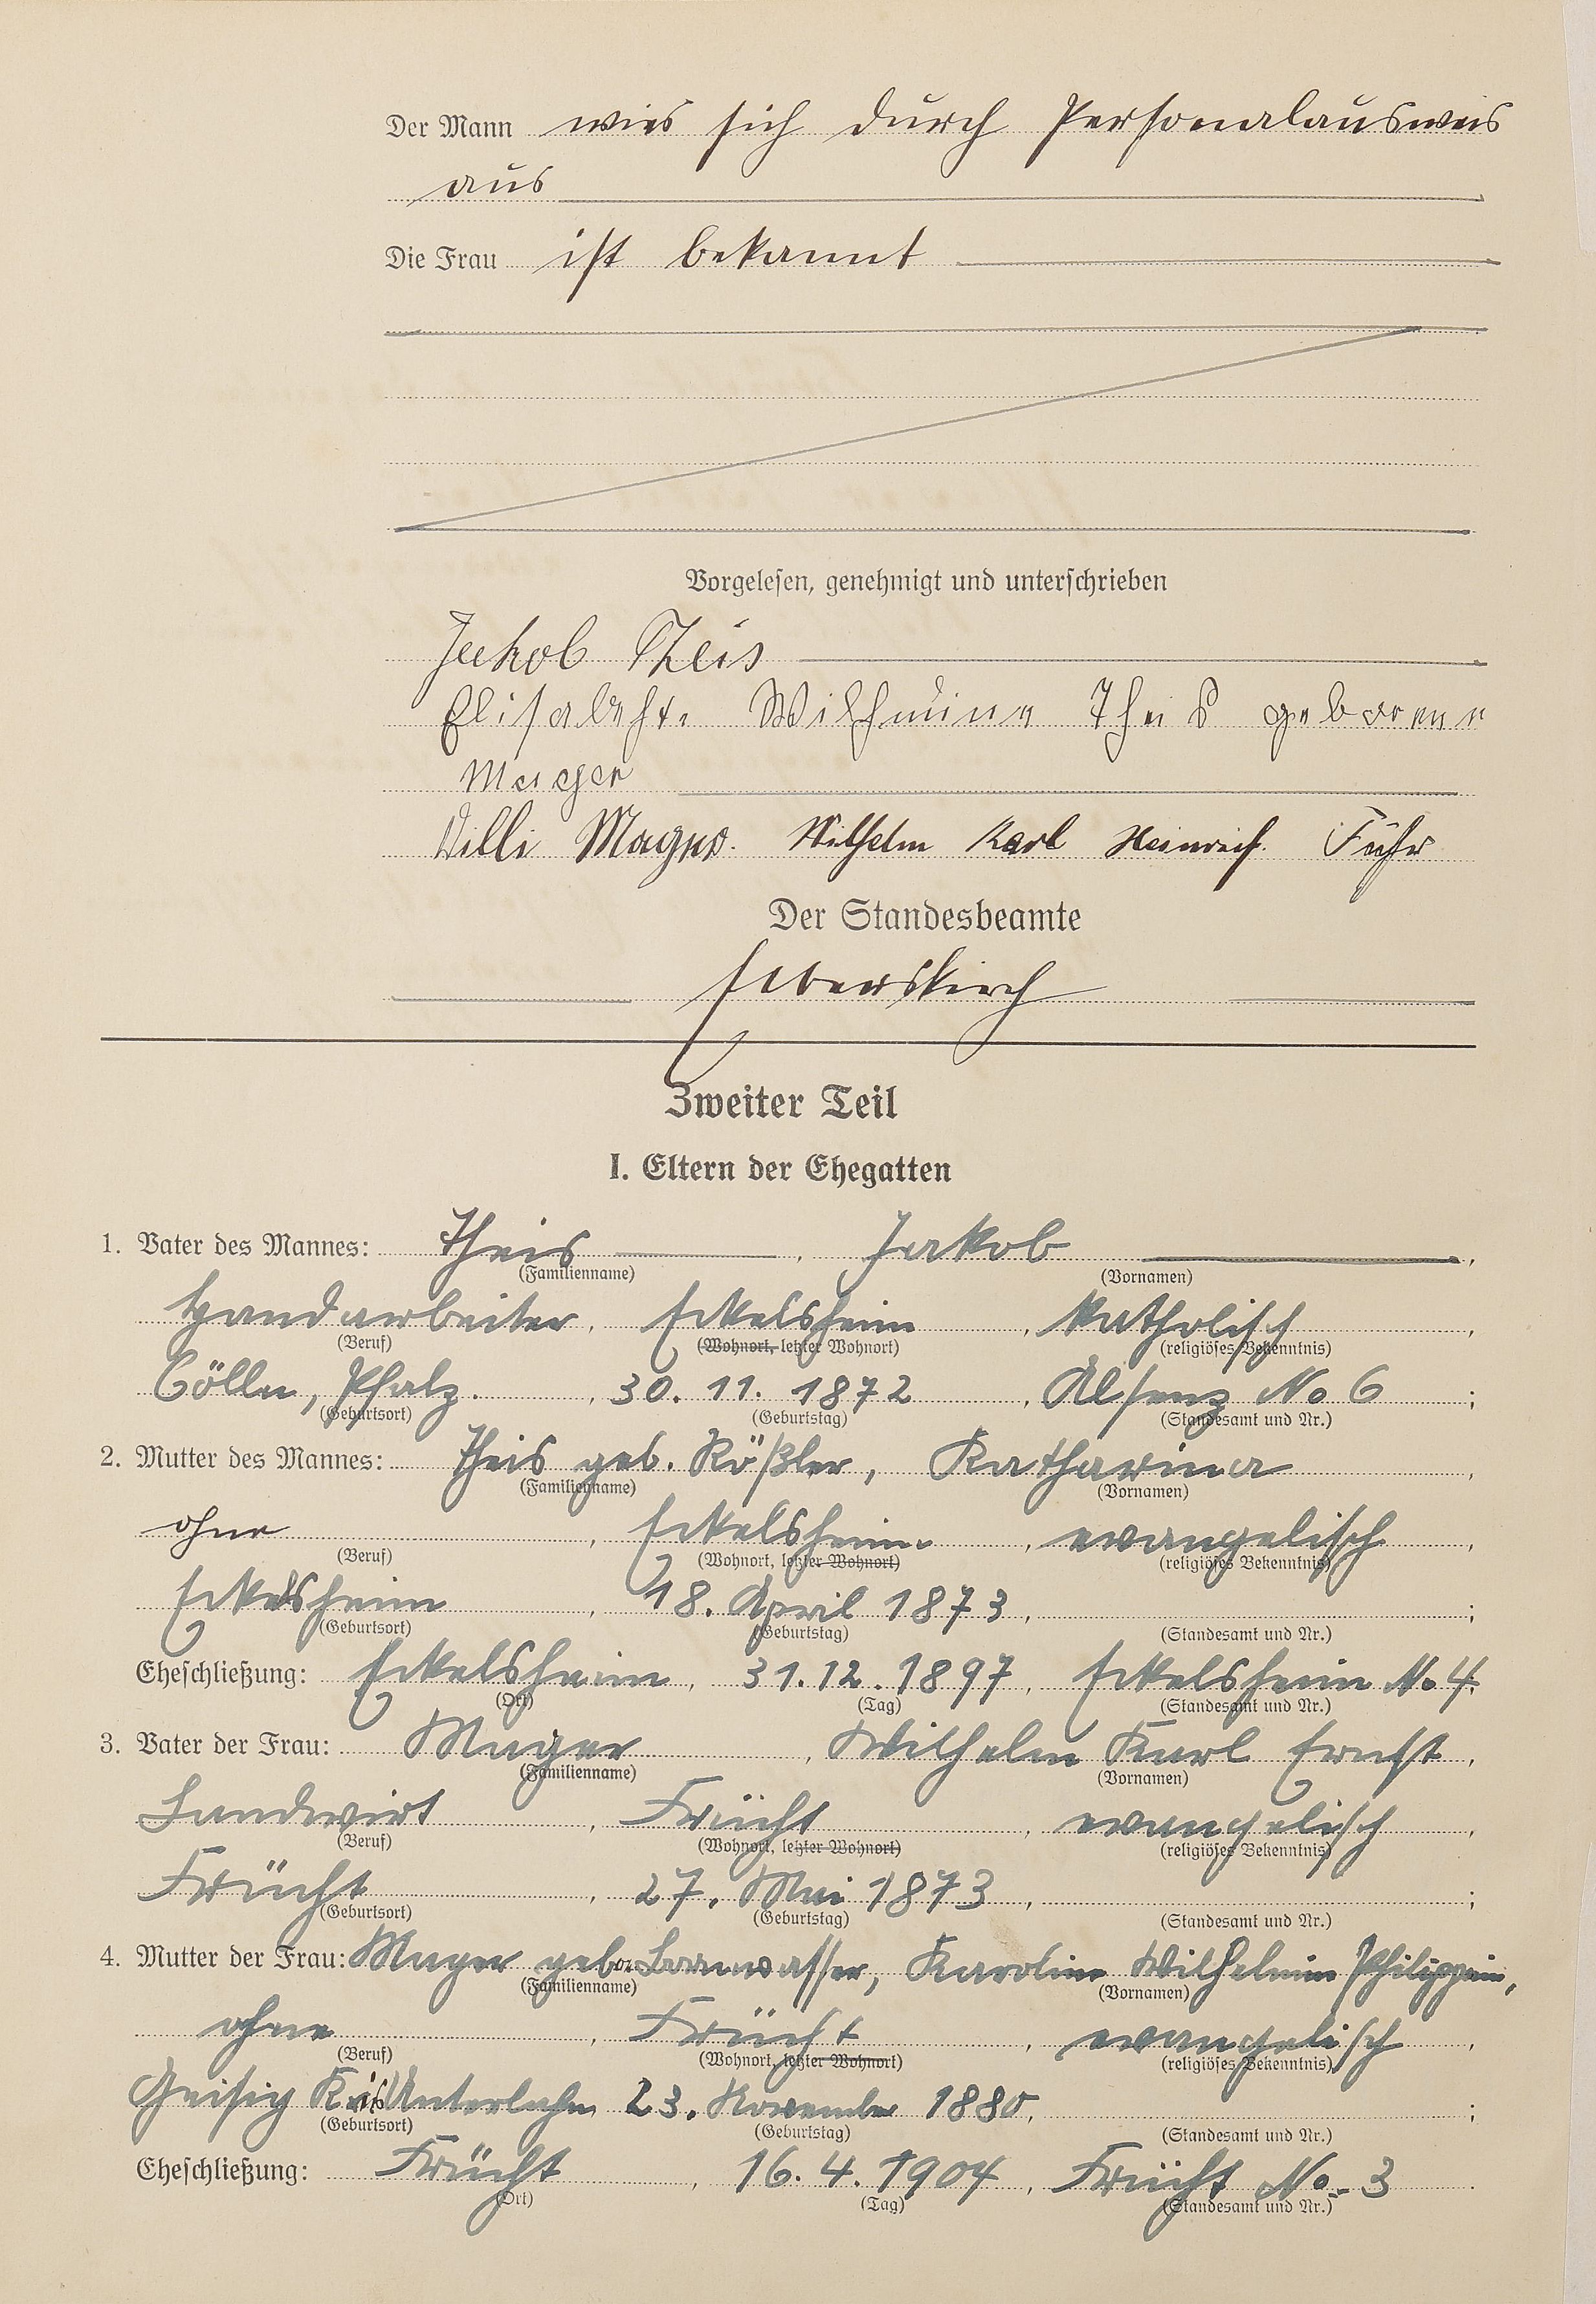 Der Mann wies sich durch Personalausweis
aus
Die Frau ist bekannt
Vorgelesen, genehmigt und unterschrieben
Jakob Theis
Elisabeht. Wilhmine Theis geborene
Mager
Willi Wilhelm Karl Heinrich. Führ
Der Standesbeamte
Zweiter Teil
I. Eltern der Ehegatten
1. Vater des Mannes: Theis, Jakob,
(Familienname) (Vornamen)
Handarbeiter, Eckelsheim, katholisch,
(Beruf) (Wohnort, letzter Wohnort) (religiöses Bekenntnis)
Cölln, Pfalz., 30. 11. 1872, Alsenz No 6;
(Geburtsort) (Geburtstag) (Standesamt und Nr.)
2. Mutter des Mannes: Theis geb. Rößler, Katharina,
(Familienname) (Vornamen)
ohne, Eckelsheim, evangelisch,
(Beruf) (Wohnort, letzter Wohnort) (religiöses Bekenntnis)
Eckelsheim, 18. April 1873,;
(Geburtsort) (Geburtstag) (Standesamt und Nr.)
Eheschließung: Eckelsheim, 31. 12. 1897, Eckelsheim No 4.
(Ort) (Tag) (Standesamt und Nr.)
3. Vater der Frau: Mager, Wilhelm Karl Ernst,
(Familienname) (Vornamen)
Landwirt, Frücht, evangelisch,
(Beruf) (Wohnort, letzter Wohnort) (religiöses Bekenntnis)
Frücht, 27. Mai 1873,;
(Geburtsort) (Geburtstag) (Standesamt und Nr.)
4. Mutter der Frau: Mager Karoline Wilhelmine Philippin,
(Familienname) (Vornamen)
ohne, Frücht, evangelisch,
(Beruf) (Wohnort, letzter Wohnort) (religiöses Bekenntnis)
Geisig Kreis Unterlahn, 23. November 1880,;
(Geburtsort) (Geburtstag) (Standesamt und Nr.)
Eheschließung: Frücht, 16. 4. 1904, Frücht No. 3
(Ort) (Tag) (Standesamt und Nr.)